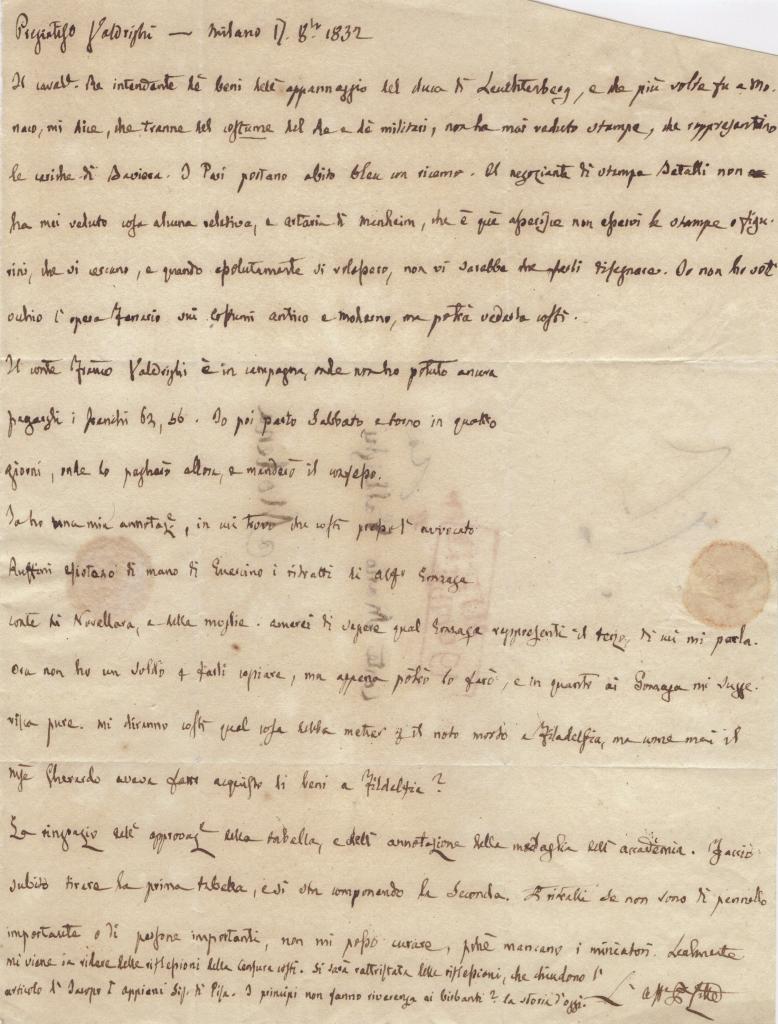 Pregiatis.o Valdrighi — Milano 17. 8bre 1832
Il caval.r Re intendente dè beni dell' appannaggio del duca di Leuchtenberg, e che più volte fu a Mo-
naco, mi dice, che tranne del costume del Re e dè militari, non ha mai veduto stampe, che rappresentino
le cariche di Baviera. I Pari portano abito bleu con ricamo. Il negoziante di stampe Betalli non
ha mai veduto cosa alcuna relativa, e Artaria di Manheim, che è quì asserisce non esservi le stampe o figu-
rini, che si cercano, e quando assolutamente si volessero, non vi sarebbe che farli disegnare. Io non ho sott'
occhio l' opera Ferrario sui costumi antico e moderno, ma potrà vederla costì.
Il conte Franco Valdrighi è in campagna, onde non ho potuto ancora
pagargli i franchi 62, 56. Io poi parto Sabbato e torno in quattro
giorni, onde lo pagherò allora, e manderò il confesso.
Io ho una mia annotaz.e, in cui trovo che costì presso l' avvocato
Ruffini esistano di mano di Guercino i ritratti di Alf.o Gonzaga
conte di Novellara, e della moglie. Amerei di sapere qual Gonzaga rappresenti il terzo, di cui mi parla.
Ora non ho un soldo p farli copiare, ma appena potrò lo farò, e in quanto ai Gonzaga mi sugge-
risca pure. Mi diranno costì qual cosa debba metter p il noto morto a Filadelfia, ma come mai il
Mse Gherardo aveva fatto acquisto di beni a Fildelfia?
La ringrazio dell' approvaz.e della tabella, e dell' annotazione della medaglia dell' accademia. Faccio
subito tirare la prima tabella, e si sta componendo la Seconda. Ritratti se non sono di pennello
importante o di persone importanti, non mi posso curare, poichè mancano i miniatori. Realmente
mi viene da ridere delle riflessioni della Censura costì. Si sarà rattristata delle riflessioni, che chiudono l'
articolo di Jacopo I Appiani Sig. di Pisa. I principi non fanno riverenza ai birbanti? la storia d'oggi. L' aff.o Litta